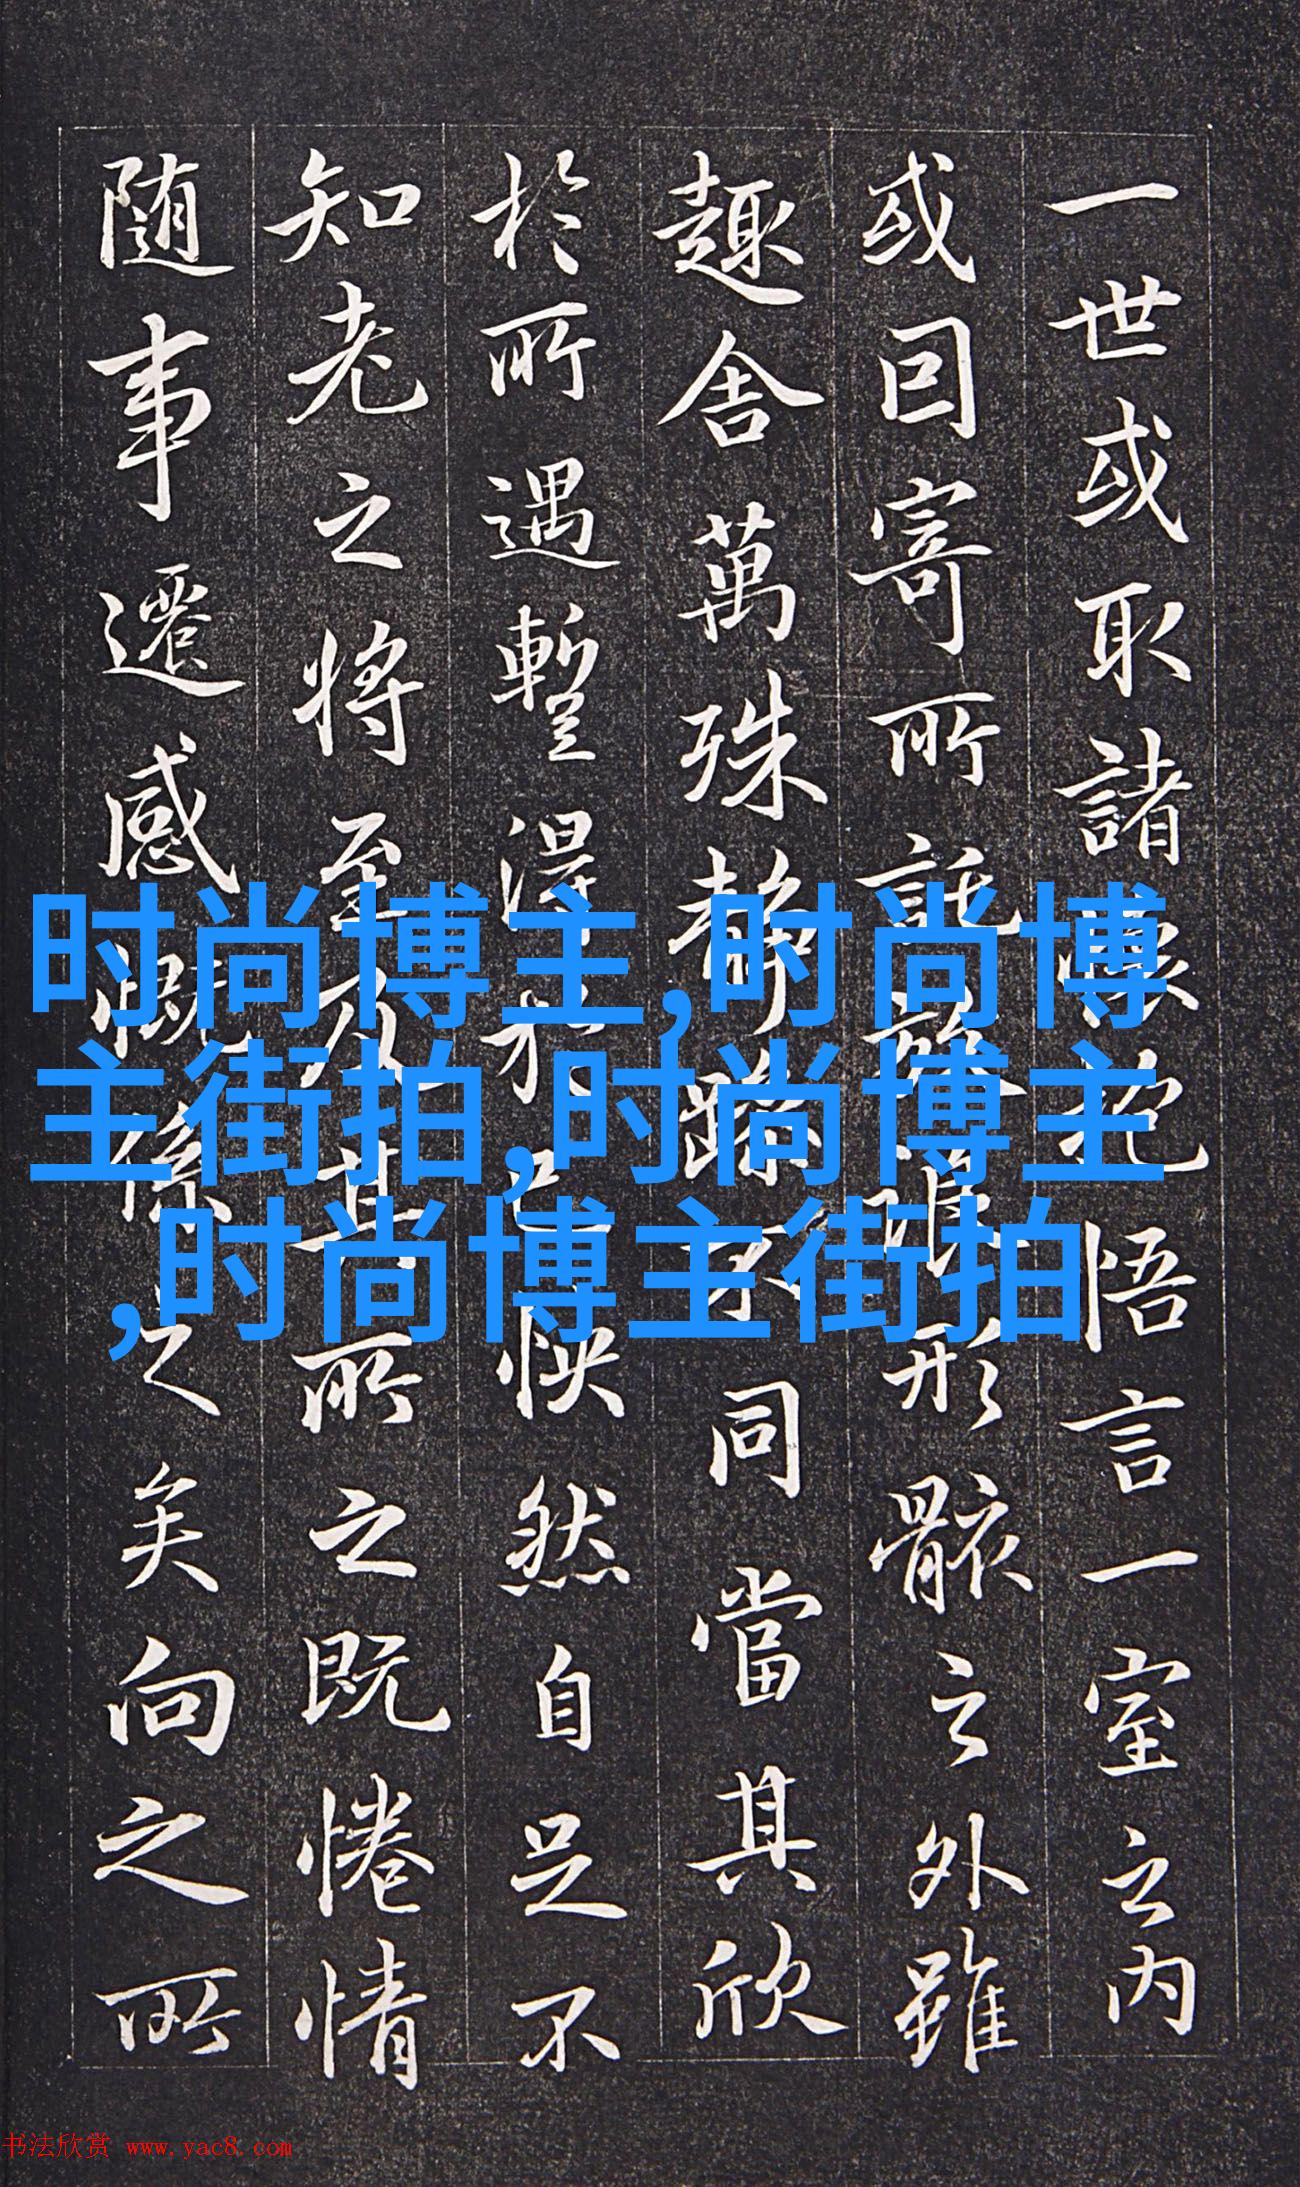 一世或取諸懷抱悟言一室之内
或因寄所託放浪形骸之外雖
趣舍萬殊静躁不同當其欣
於所遇暫得於己快然自足不
知老之將至及其所之既惓情
随事遷感慨係之矣向之所
时尚博主,时尚博
主街拍,时尚博主
,时尚博主街拍
书法欣赏 www.yac8.com